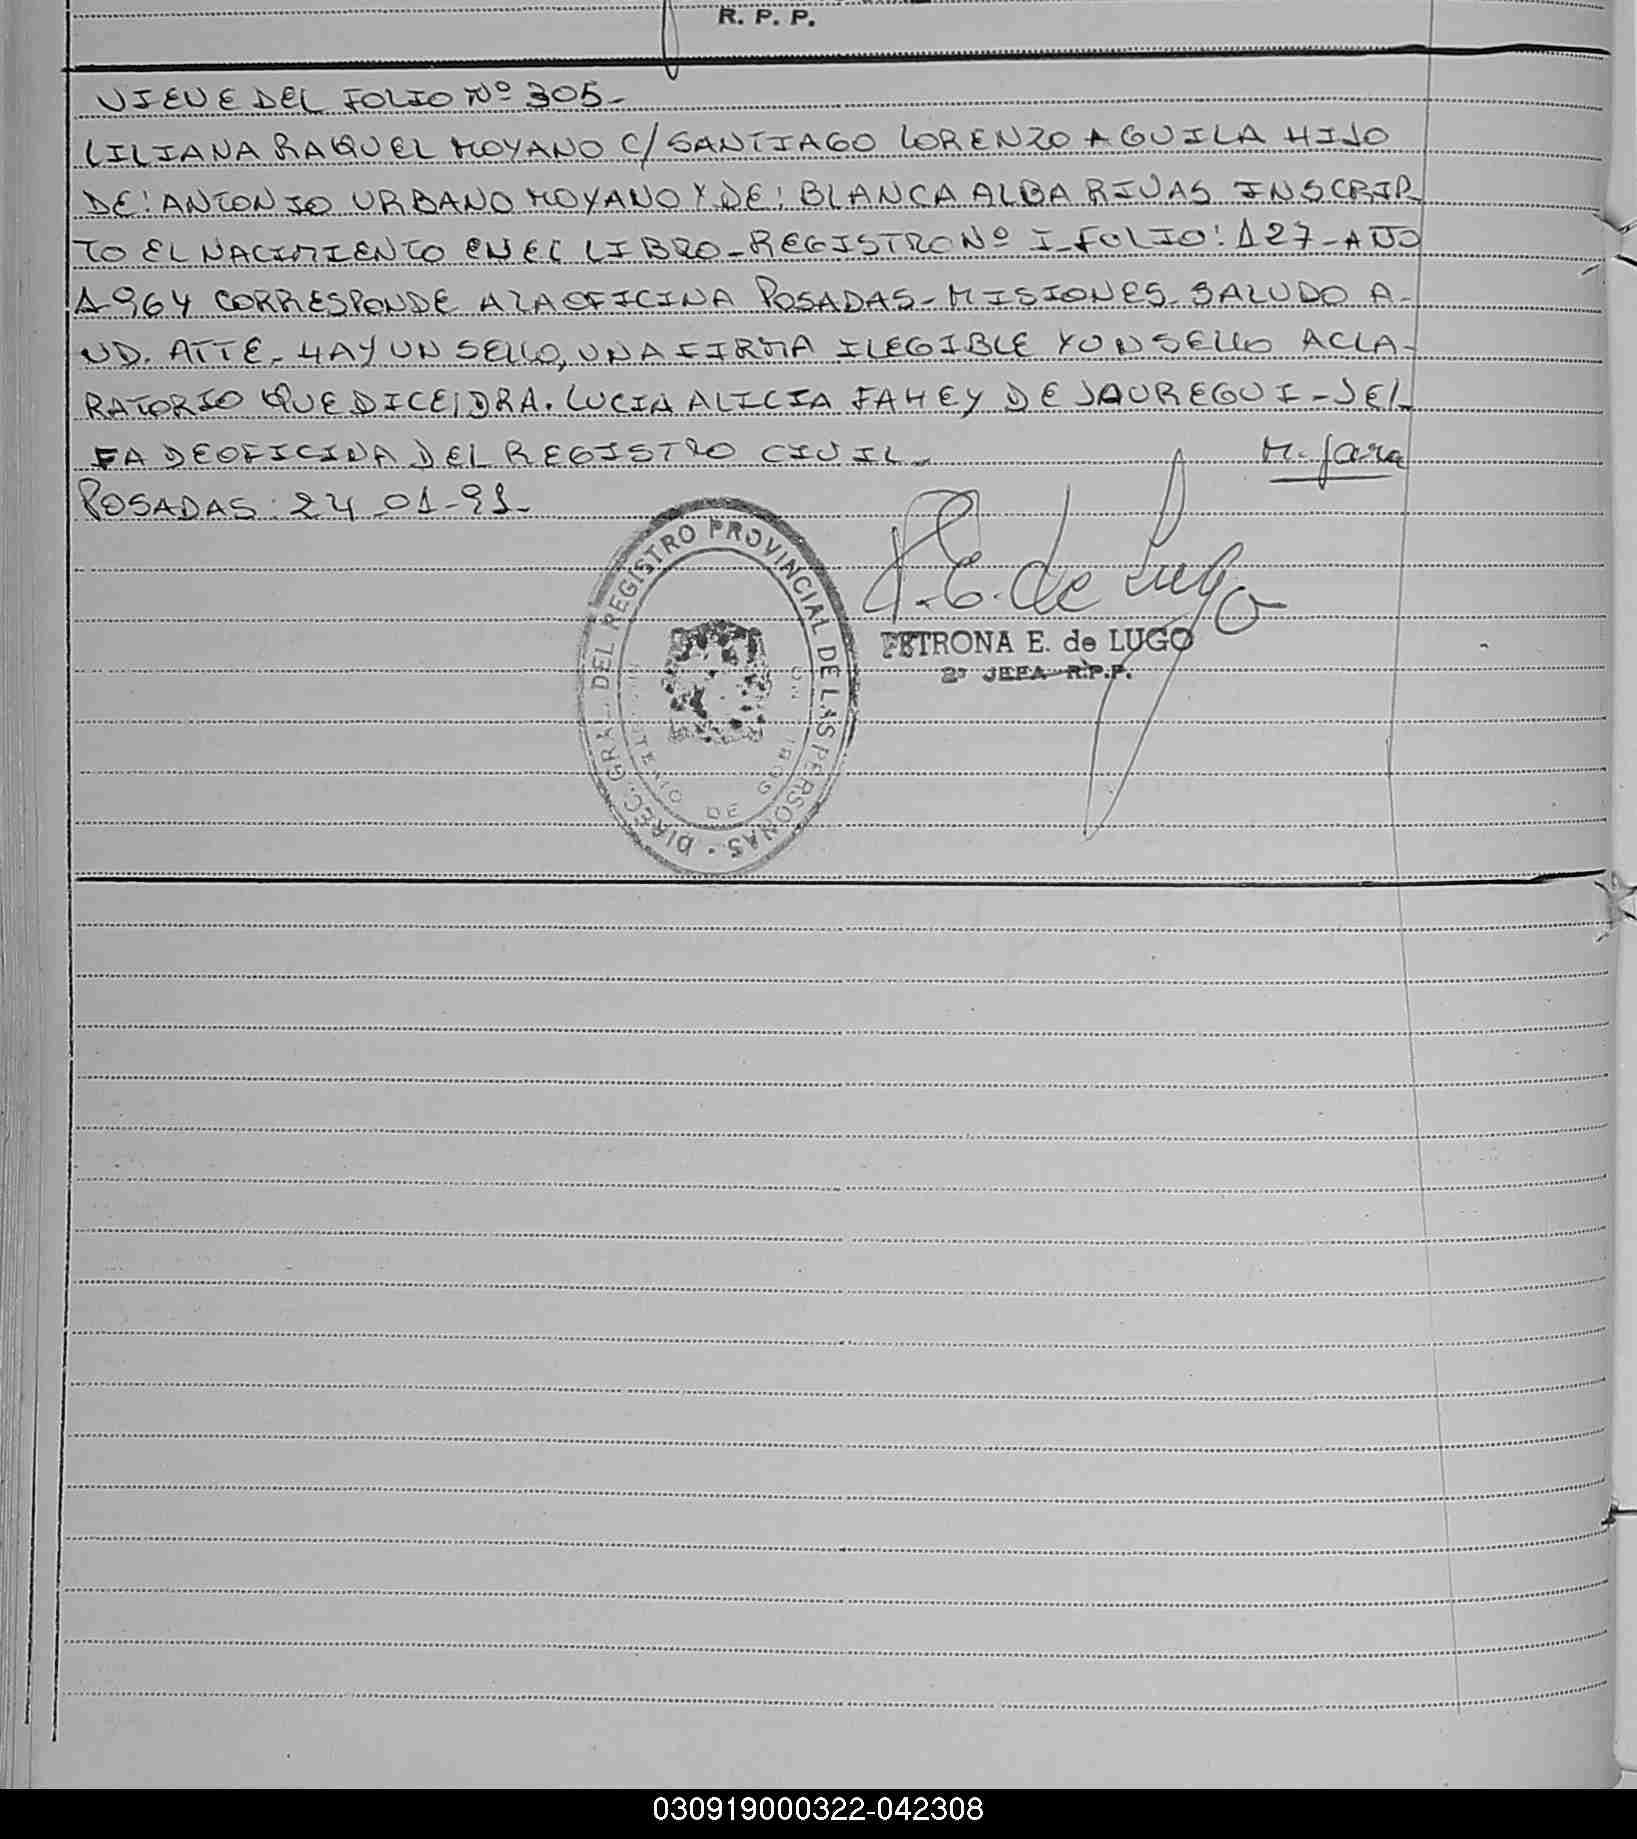 R. P. P.
VIENE DEL FOLIO Nº 305-
LILIANA RAQUEL MOYANO C/ SANTIAGO LORENZO AGUILA HIJO
DE: ANTONIO URBANO MOYANO Y DE: BLANCA ALBA RIVAS INSCRIP-
TO EL NACIMIENTO EN EL LIBRO-REGISTRO Nº I-FOLIO: 127-AÑO
1964 CORRESPONDE A LA OFICINA POSADAS-MISIONES. SALUDO A-
UD. ATTE. HAY UN SELLO, UNA FIRMA ILEGIBLE Y UN SELLO ACLA-
RATORIO QUE DICE: DRA. LUCIA ALICIA FAHEY DE JAUREGUI-JEL
FA DE OFICINA DEL REGISTRO CIVIL- M. Jara
POSADAS: 24-01-91-
DIREC. GRAL. DEL REGISTRO PROVINCIAL DE LAS PERSONAS ·
DE
P.E. de Lugo
PETRONA E. de LUGO
2º JEFA R.P.P.
030919000322-042308